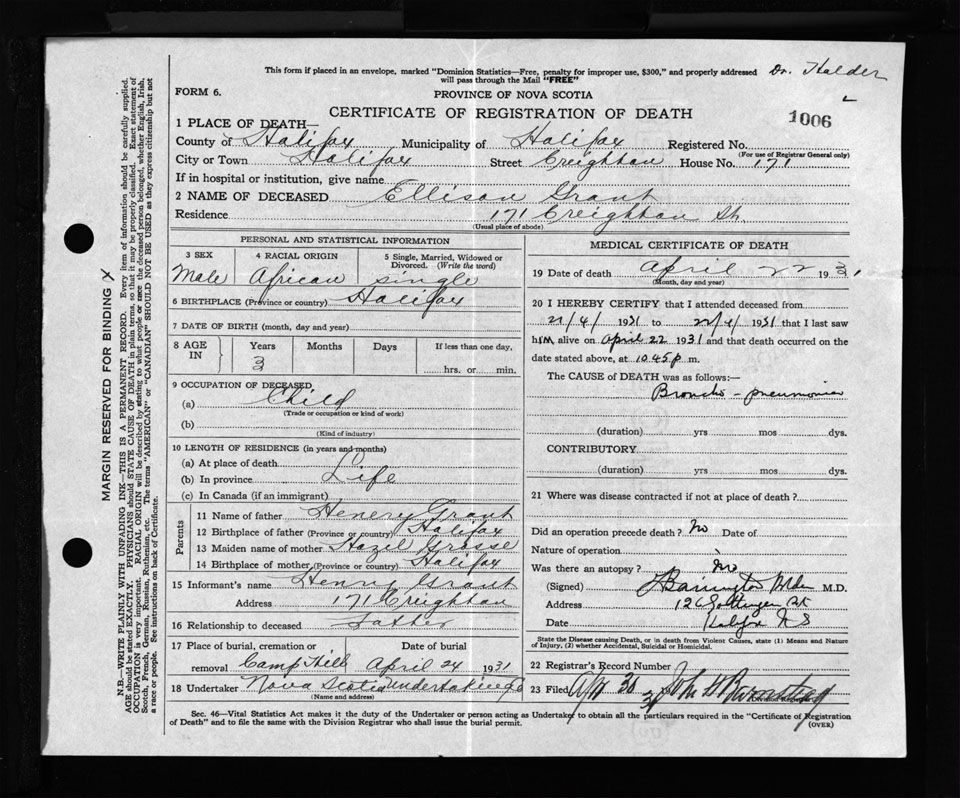 This form if placed in an envelope, marked "Dominion Statistics—Free, penalty for improper use, $300," and properly addressed
will pass through the Mail "FREE"
Dr. Halder
FORM 6.
PROVINCE OF NOVA SCOTIA
CERTIFICATE OF REGISTRATION OF DEATH
1006
1 PLACE OF DEATH—
County of Halifax Municipality of Halifax Registered No.
(For use of Registrar General only)
City or Town Halifax Street Creighton House No. 171
If in hospital or institution, give name
2 NAME OF DECEASED Ellison Grant
Residence 171 Creighton St.
(Usual place of abode)
PERSONAL AND STATISTICAL INFORMATION
3 SEX 4 RACIAL ORIGIN 5 Single, Married, Widowed or
Divorced. (Write the word)
Male African single
6 BIRTHPLACE (Province or country) Halifax
7 DATE OF BIRTH (month, day and year)
8 AGE
IN
Years Months Days If less than one day,
3
hrs. or min.
9 OCCUPATION OF DECEASED
(a) Child
(Trade or occupation or kind of work)
(b)
(Kind of industry)
10 LENGTH OF RESIDENCE (in years and months)
(a) At place of death
(b) In province Life
(c) In Canada (if an immigrant)
Parents
11 Name of father Henery Grant
12 Birthplace of father (Province or country) Halifax
13 Maiden name of mother Hazel
14 Birthplace of mother (Province or country) Halifax
15 Informant's name Henry Grant
Address 171 Creighton
16 Relationship to deceased Father
17 Place of burial, cremation or Date of burial
removal Camp Hill April 24 1931
18 Undertaker Nova Scotia Undertaking Co
(Name and address)
MEDICAL CERTIFICATE OF DEATH
19 Date of death April 22 1931
(Month, day and year)
20 I HEREBY CERTIFY that I attended deceased from
21/4/ 1931 to 22/4/ 1931 that I last saw
him alive on April 22 1931 and that death occurred on the
date stated above, at 10.45 p. m.
The CAUSE of DEATH was as follows:—
Broncho-pneumonia
(duration) yrs mos dys.
CONTRIBUTORY
(duration) yrs mos dys.
21 Where was disease contracted if not at place of death?
Did an operation precede death? No Date of
Nature of operation
Was there an autopsy? No
(Signed) M.D.
Address 126 Gottingen St
Date Halifax N S
State the Disease causing Death, or in death from Violent Causes, state (1) Means and Nature
of Injury, (2) whether Accidental, Suicidal or Homicidal.
22 Registrar's Record Number
23 Filed Apr 30 31 John
Division Registrar
Sec. 46—Vital Statistics Act makes it the duty of the Undertaker or person acting as Undertaker to obtain all the particulars required in the "Certificate of Registration
of Death" and to file the same with the Division Registrar who shall issue the burial permit.
(OVER)
MARGIN RESERVED FOR BINDING
N.B.—WRITE PLAINLY WITH UNFADING INK—THIS IS A PERMANENT RECORD. Every item of information should be carefully supplied.
AGE should be stated EXACTLY. PHYSICIANS should STATE CAUSE OF DEATH in plain terms, so that it may be properly classified. Exact statement of
OCCUPATION is very important. RACIAL ORIGIN will be described by stating to what people or race the deceased person belonged, whether English, Irish,
Scotch, French, German, Russian, Ruthenian, etc. The terms "AMERICAN" or "CANADIAN" SHOULD NOT BE USED as they express citizenship but not
a race or people. See instructions on back of Certificate.